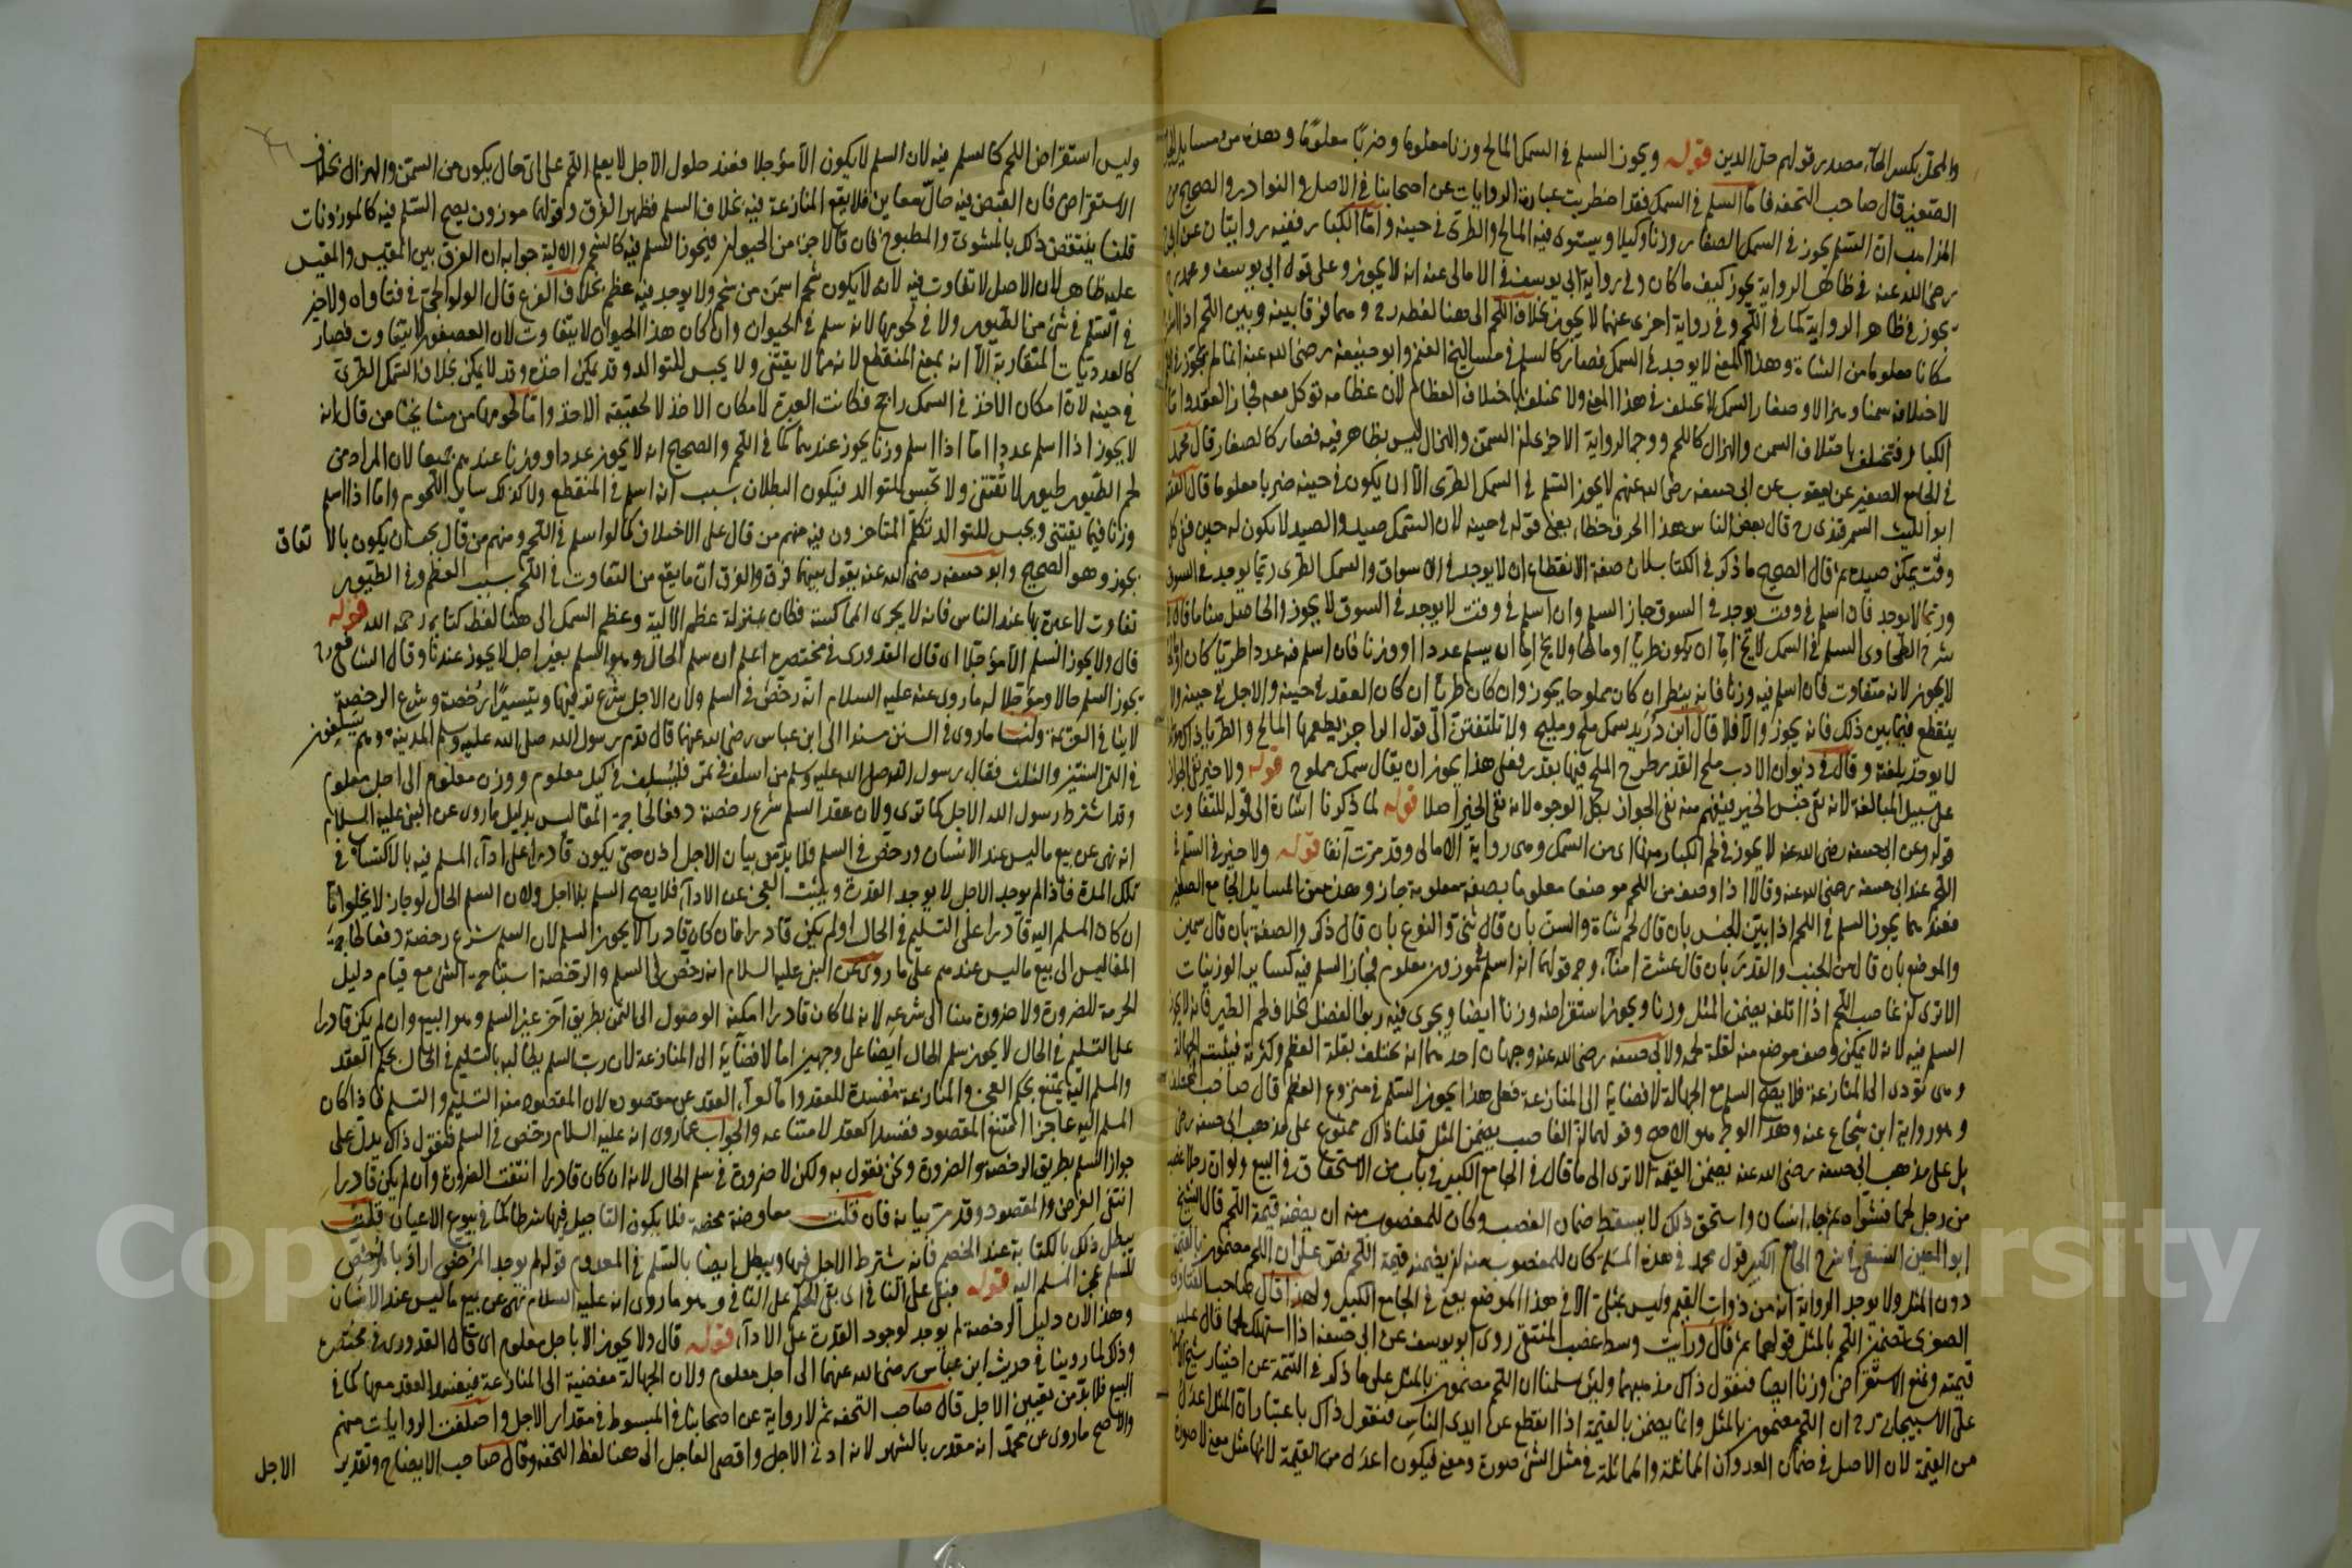 والمحل بكسر الحاء مصدر قولهم حل الدين قوله ويجوز السلم في السمك المالح وزنا معلوما وضربا معلوما وهذه من مسايل
الصغير قال صاحب التحفه فاما السلم في السمك فقد اضطربت عبارة الروايات عن اصحابنا في الاصل والنوادر والصحيح من
المذاهب ان السلم يجوز في السمك الصغار وزنا وكيلا ويستوى فيه المالح والطرى في حينه واما الكبار ففيه روايتان عن
رضى الله عنه في ظاهر الرواية يجوز كيف ما كان وفي رواية ابى يوسف في الامالى عنه انه لا يجوز وعلى قول ابى يوسف ومحمد
يجوز في ظاهر الرواية كما في اللحم وفي رواية اخرى عنهما لا يجوز بخلاف اللحم الى هنا لفظه رح وهما فرقا بينه وبين اللحم اذا
مكانا معلوما من الشاة وهذا المعنى لا يوجد في السمك فصار كالسلم في مساليخ الغنم وابو حنيفة رضى الله عنه انما لم يجوز
لاختلافه سمنا وهزالا وصغار السمك لا يختلف في هذا المعنى ولا يختلف باختلاف العظام لان عظامه توكل معه فجاز العقد واما
الكبار فتختلف باختلاف السمن والهزال كاللحم ووجه الرواية الاخرى ان السمن والهزال ليس بظاهر فيه فصار كالصغار قال محمد
في الجامع الصغير عن يعقوب عن ابى حنيفه رضى الله عنهم لا يجوز السلم في السمك الطرى الا ان يكون في حينه ضربا معلوما قال الفقيه
ابو الليث السمرقندى رح قال بعض الناس هذا الحرف خطاء يعنى قوله في حينه لان السمك صيد والصيد لا يكون له حين ففى كل
وقت يمكن صيده ثم قال الصحيح ما ذكر في الكتاب لان صفة الانقطاع ان لا يوجد في الاسواق والسمك الطرى ربما يوجد في السوق
وربما لا يوجد فان اسلم في وقت يوجد في السوق جاز السلم وان اسلم في وقت لا يوجد في السوق لا يجوز والحاصل هنا ما قال
شرح الطحاوى السلم في السمك لا يخ اما ان يكون طريا او مالحا ولا يخ اما ان يسلم عددا او وزنا فان اسلم فيه عددا طريا كان او
لا يجوز لانه متفاوت فان اسلم فيه وزنا فانه ينظر ان كان مملوحا يجوز وان كان طريا ان كان العقد في حينه والاجل في حينه ولا
ينقطع فيما بين ذلك فانه يجوز والا فلا قال ابن دريد سمك ملح ومليح ولا تلتفتن الى قول الراجز يطعمها المالح والطريا ذاك
لا يوخذ بلغته وقال في ديوان الادب ملح القدر طرح الملح فيها بقدر فعلى هذا يجوز ان يقال سمك مملوح قوله ولا خير
على سبيل المبالغة لانه نفى جنس الخير فيفهم منه نفى الجواز بكل الوجوه لانه نفى الخير اصلا قوله لما ذكرنا اشارة الى قوله للتفاوت
قوله وعن ابى حنيفه رضى الله عنه لا يجوز في لحم الكبار منها اى من السمك وهى رواية الامالى وقد مرت آنفا قوله ولا خير في السلم في
اللحم عند ابى حنيفه رضى الله عنه وقالا اذا وصف من اللحم موضعا معلوما بصفة معلومة جاز وهذه من المسايل الجامع الصغير
فعندهما يجوز السلم في اللحم اذا بين الجنس بان قال لحم شاة والسن بان قال ثنى والنوع بان قال ذكر والصفة بان قال سمين
والموضع بان قال من الجنب والقدر بان قال عشرة امناء وجه قولهما انه اسلم في موزون معلوم فجاز السلم فيه كساير الوزنيات
الا ترى ان غاصب اللحم اذا اتلفه يضمن المثل وزنا ويجوز استقراضه وزنا ايضا ويجرى فيه ربوا الفضل بخلاف لحم الطير فانه لا يجوز
السلم فيه لانه لا يمكن وصف موضع منه لقلة لحمه ولابى حنيفه رضى الله عنه وجهان احدهما انه يختلف بقلة العظم وكثرته فيثبت الجهالة
وهى تؤدى الى المنازعة فلا يصح السلم مع الجهالة لافضايه الى المنازعة فعلى هذا يجوز السلم في منزوع العظم قال صاحب
وهو رواية ابن شجاع عنه وهذا الوجه هو الاصح وقولهما ان الغاصب يضمن المثل قلنا ذاك ممنوع على مذهب ابى حنيفه رضى
بل على مذهب ابى حنيفه رضى الله عنه يضمن القيمة الا ترى الى ما قال في الجامع الكبير في باب من الاستحقاق في البيع ولو ان رجلا غصب
من رجل لحما فشواه ثم جاء انسان واستحق ذلك لا يسقط ضمان الغصب وكان للمغصوب منه ان يضمنه قيمة اللحم قال الشيخ
ابو المعين النسفى في شرح الجامع الكبير قول محمد في هذه المسئلة كان للمغصوب منه ان يضمنه قيمة اللحم نص على ان اللحم مضمون بالقيمة
دون المثل ولا يوجد الرواية انه من ذوات القيم وليس بمثلى الا في هذا الموضع يعنى في الجامع الكبير ولهذا قال صاحب الفتاوى
الصغرى تضمين اللحم بالمثل قولهما ثم قال ورأيت وسط غصب المنتقى روى ابو يوسف عن ابى حنيفة اذا استهلك لحما قال عليه
قيمته ونمنع الاستقراض وزنا ايضا فنقول ذاك مذهبهما ولئن سلمنا ان اللحم مضمون بالمثل على ما ذكر في التتمة عن اختيار شيخ الاسلام
على الاسبيجابى رح ان اللحم مضمون بالمثل وانما يضمن بالقيمة اذا انقطع عن ايدى الناس فنقول ذاك باعتبار ان المثل اعدل
من القيمة لان الاصل في ضمان العدوان المماثلة والمماثلة في مثل الشئ صورة ومعنى فيكون اعدل من القيمة لانها مثل معنى لا صورة
وليس استقراض اللحم كالسلم فيه لان السلم لا يكون الا مؤجلا فعند حلول الاجل لا يعلم اللحم على اى حال يكون من السمن والهزال بخلاف
الاستقراض فان القبض فيه حال معاين فلا يقع المنازعة فيه بخلاف السلم فظهر الفرق وقولهما موزون يصح السلم فيه كالموزونات
قلنا ينتقض ذلك بالمشوى والمطبوخ فان قالا جزء من الحيوان فيجوز السلم فيه كالشحم والالية جوابه ان الفرق بين المقيس والمقيس
عليه ظاهر لان الاصل لا تفاوت فيه لانه لا يكون شحم اسمن من شحم ولا يوجد فيه عظم بخلاف الفرع قال الولوالجى في فتاواه ولا خير
في السلم في شئ من الطيور ولا في لحومها لانه سلم في الحيوان وان كان هذا الحيوان لا يتفاوت لان العصفور لا يتفاوت فصار
كالعدديات المتقاربة الا انه بمعنى المنقطع لانه مما لا يقتنى ولا يحبس للتوالد وقد يمكن اخذه وقد لا يمكن بخلاف السمك الطرى
في حينه لان امكان الاخذ في السمك راجح فكانت العبرة لامكان الاخذ لا لحقيقة الاخذ واما لحومها من مشايخنا من قال انه
لا يجوز اذا اسلم عددا اما اذا اسلم وزنا يجوز عندهما كما في اللحم والصحيح انه لا يجوز عددا ووزنا عندهم جميعا لان المراد من
لحم الطيور طيور لا تقتنى ولا تحبس للتوالد فيكون البطلان بسبب انه اسلم في المنقطع ولا كذلك ساير اللحوم واما اذا اسلم
وزنا فيما يقتنى ويحبس للتوالد تكلم المتاخرون فيه منهم من قال على الاختلاف كما لو اسلم في اللحم ومنهم من قال يجب ان يكون بالاتفاق
يجوز وهو الصحيح وابو حنيفه رضى الله عنه يقول بينهما فرق والفرق ان ما يقع من التفاوت في اللحم بسبب العظم وفي الطيور
تفاوت لا عبرة بها عند الناس فانه لا يجرى المماكسة فكان بمنزلة عظم الالية وعظم السمك الى هنا لفظ كتابه رحمه الله قوله
قال ولا يجوز السلم الا مؤجلا اى قال القدورى في مختصره اعلم ان سلم الحال وهو السلم بغير اجل لا يجوز عندنا وقال الشافعى رح
يجوز السلم حالا ومؤجلا له ما روى عنه عليه السلام انه رخص في السلم ولان الاجل شرع ترفيها وتيسيرا رخصة وشرع الرخصة
لا ينافى العزيمة ولنا ما روى في السنن مسندا الى ابن عباس رضى الله عنهما قال قدم رسول الله صلى الله عليه وسلم المدينة وهم يسلفون
في التمر السنتين والثلث فقال رسول الله صلى الله عليه وسلم من اسلف في تمر فليسلف في كيل معلوم ووزن معلوم الى اجل معلوم
وقد اشترط رسول الله الاجل كما ترى ولان عقد السلم شرع رخصة دفعا لحاجة المفاليس بدليل ما روى عن النبى عليه السلام
انه نهى عن بيع ما ليس عند الانسان ورخص في السلم فلا بد من بيان الاجل اذن حتى يكون قادرا على اداء المسلم فيه بالاكتساب في
تلك المدة فاذا لم يوجد الاجل لا يوجد القدرة ويثبت العجز عن الاداء فلا يصح السلم بلا اجل ولان السلم الحال لو جاز لا يخلو اما
ان كان المسلم اليه قادرا على التسليم في الحال او لم يكن قادرا فان كان قادرا لا يجوز السلم لان السلم شرع رخصة دفعا لحاجة
المفاليس الى بيع ما ليس عندهم على ما روى عن النبى عليه السلام انه رخص في السلم والرخصة استباحة الشئ مع قيام دليل
الحرمة للضرورة ولا ضرورة هنا الى شرعه لانه لما كان قادرا امكنه الوصول الى الثمن بطريق آخر غير السلم وهو البيع وان لم يكن قادرا
على التسليم في الحال لا يجوز سلم الحال ايضا على وجهين اما لافضايه الى المنازعة لان رب السلم يطالبه بالتسليم في الحال بحكم العقد
والمسلم اليه يمتنع بحكم العجز والمنازعة مفسدة للعقد واما لخواء العقد عن مقصوده لان المقصود منه التسليم والتسلم فاذا كان
المسلم اليه عاجزا امتنع المقصود ففسد العقد لامتناعه والجواب عما روى انه عليه السلام رخص في السلم فنقول ذاك يدل على
جواز السلم بطريق الرخصة والضرورة ونحن نقول به ولكن لا ضرورة في سلم الحال لانه ان كان قادرا انتفت الضرورة وان لم يكن قادرا
انتفى الغرض والمقصود وقد مر بيانه فان قلت معاوضة محضة فلا يكون التاجيل فيها شرطا كما في بيوع الاعيان قلت
يبطل ذلك بالكتابة عند الخصم فانه شترط الاجل فيها ويبطل ايضا بالسلم في المعدوم قوله لم يوجد المرخص اراد بالمرخص
للسلم عجز المسلم اليه قوله فبقى على النافى اى بقى الحكم على النافى وهو ما روى انه عليه السلام نهى عن بيع ما ليس عند الانسان
وهذا لان دليل الرخصة لم يوجد لوجود القدرة على الاداء قوله قال ولا يجوز الا باجل معلوم اى قال القدورى في مختصره
وذلك لما روينا في حديث ابن عباس رضى الله عنهما الى اجل معلوم ولان الجهالة مفضية الى المنازعة فيفسد العقد معها كما في
البيع فلا بد من تعيين الاجل قال صاحب التحفه ثم لا رواية عن اصحابنا في المبسوط في مقدار الاجل واختلفت الروايات عنهم
والاصح ما روى عن محمد انه مقدر بالشهر لانه ادنى الاجل واقصى العاجل الى هنا لفظ التحفه وقال صاحب الايضاح وتقدير
الاجل
Copyright © King Saud University